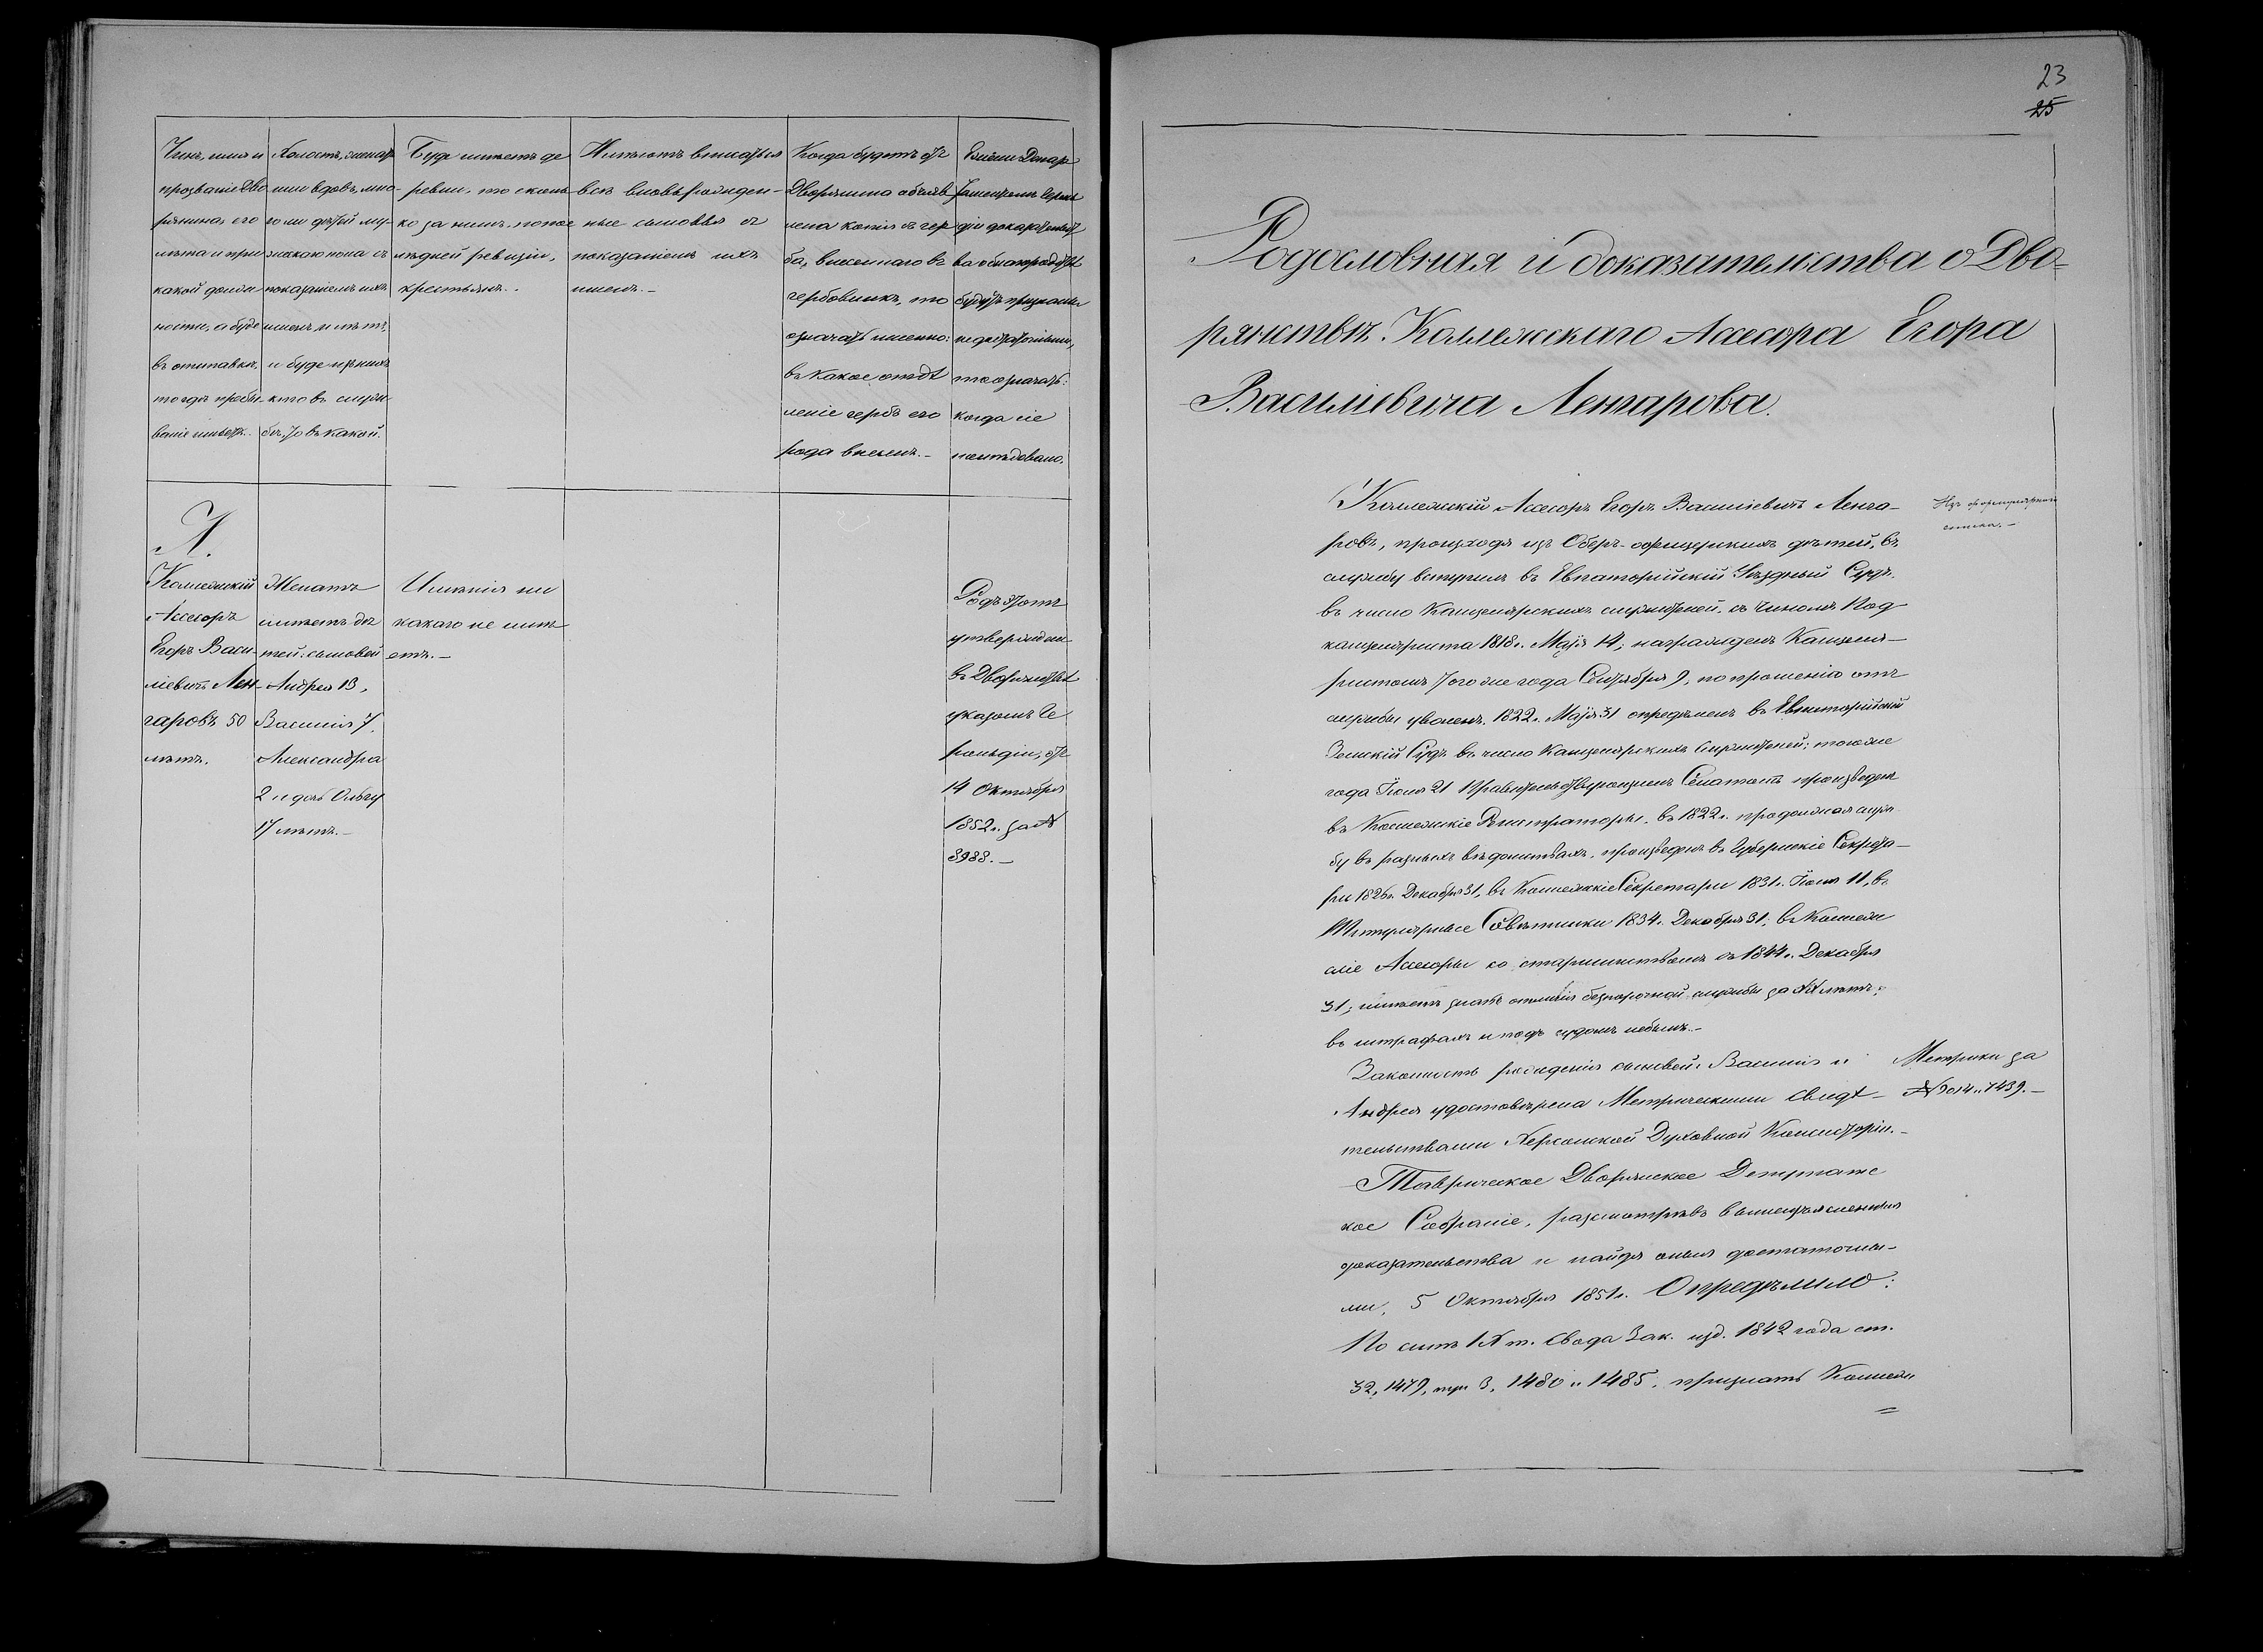 Чинъ, имя и
прозваніе Дво
рянина, его
лѣта и при
какой долж
ности, а буде
въ отставкѣ,
то гдѣ пребы-
ваніе имѣетъ.
Холостъ, женатъ
или вдовъ, мно-
го ли дѣтей му-
жескаго пола съ
показаніемъ ихъ
именъ и лѣтъ,
и буде изъ нихъ
кто въ служ-
бѣ, то въ какой.
Буде имѣетъ де
ревни, то сколь
ко за нимъ, по пос
лѣдней ревизіи,
крестьянъ.
Имѣютъ вписаться
всѣ вновь рожден-
ные сыновья съ
показаніемъ ихъ
именъ.-
Когда будетъ отъ
Дворянина объяв
лена копія съ гер
ба, внесеннаго въ
гербовникъ, то
означать именно:
въ какое отдѣ
леніе гербъ его
рода внесенъ.-
Ежели Депар
таментомъ Героль
діи доказательст
ва о благородствѣ
будутъ признаны
недостаточными,
то означать:
когда сіе
послѣдовало.
Л.
Коллежскій
Ассесоръ
Егоръ Васи-
ліевичъ Лен-
гаровъ 50
лѣтъ.
Женатъ
имѣетъ дѣ
тей: сыновей
Андрея 13,
Василія 7,
Александра
2 и дочь Ольгу
17 лѣтъ.-
Имѣнія ни
какого не имѣ
етъ.-
Родъ этотъ
утвержден
въ Дворянствѣ
указомъ Ге
рольдіи, отъ
14 Октября
1852 г. за №
8988.-
23
25
Родословная и доказательства о Дво-
рянствѣ Коллежскаго Ассесора Егора
Василіевича Ленгарова.
Коллежскій Ассесоръ Егоръ Василіевичъ Ленга-
ровъ, происходя изъ Оберъ-офицерскихъ дѣтей, въ
службу вступилъ въ Евпаторійскій Уѣздный Судъ.
въ число Канцелярскихъ служителей съ чиномъ Под
канцеляриста 1818 г. Маія 14; награжденъ Канцеля-
ристомъ того же года Сентября 9, по прошенію отъ
службы уволенъ. 1822 г. Маія 31 опредѣленъ въ Евпаторійскій
Земскій Судъ въ число Канцелярскихъ Служителей; того же
года Іюля 21 Правительствующимъ Сенатомъ произведенъ
въ Коллежскіе Регистраторы. въ 1822 г. продолжая служ
бу въ разныхъ вѣдомствахъ, произведенъ въ Губернскіе Секрета-
ри 1826 г. Декабря 31, въ Коллежскіе Секретари 1831 г. Іюля 11, въ
Титулярные Совѣтники 1834 г. Декабря 31; въ Коллеж
скіе Ассесоры со старшинствомъ съ 1844 г. Декабря
31; имѣетъ знакъ отличія безпорочной службы за XX лѣтъ;
въ штрафахъ и подъ судомъ небылъ.-
Законность рожденія сыновей: Василія и
Андрея удостовѣрена Метрическими Свидѣ-
тельствами Херсонской Духовной Консисторіи.-
Таврическое Дворянское Депутатс
кое Собраніе, разсмотрѣвъ вышеизъясненныя
доказательства и найдя оныя достаточны-
ми, 5 Октября 1851 г. Опредѣлило:
По силѣ IX т. Свода Зак. изд. 1842 года ст.
32, 1479, пун 3, 1480 и 1485, признать Коллеж
Изъ формулярнаго
списка.-
Метрики за
№ 9014 и 7439.-